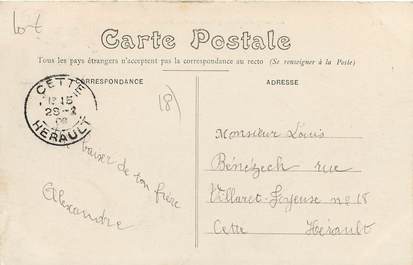 Lot
Carte Postale
Tous les pays étrangers n'acceptent pas la correspondance au recto (Se renseigner à la Poste)
CORRESPONDANCE
ADRESSE
18
CETTE
HERAULT
baiser de ton frère
Alexandre
Monsieur Louis
Bénézech rue
Villaret-Joyeuse no 18
Cette Hérault